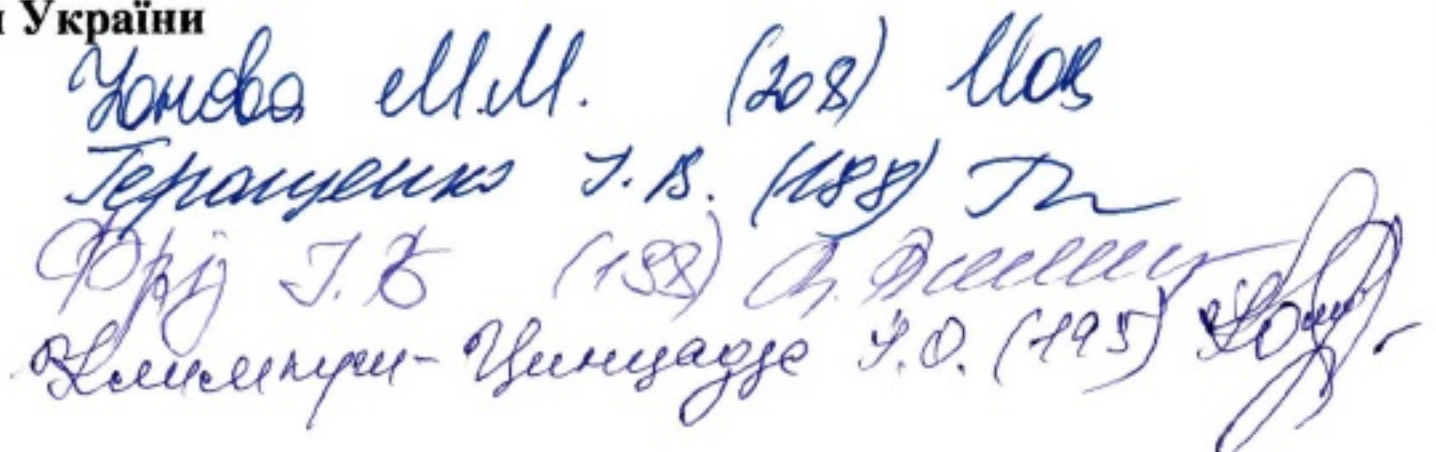 и України
Іонова М.М. (208)
Геращенко І.В. (188)
Фріз І.В (188)
Климпуш-Цинцадзе І.О. (195)